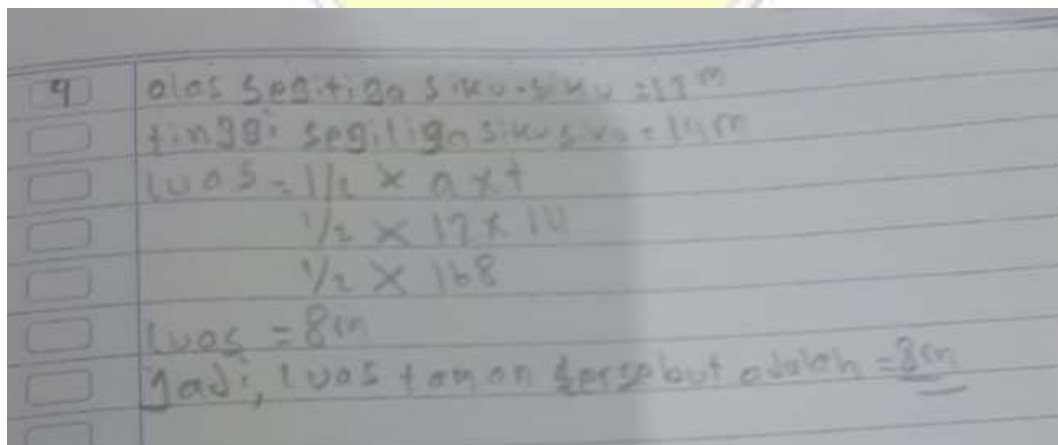 4 alas segitiga siku-siku = 12 m
tinggi segitiga siku siku = 14 m
luas = 1/2 x a x t
1/2 x 12 x 14
1/2 x 168
luas = 8 m
Jadi, luas taman tersebut adalah = 8 m